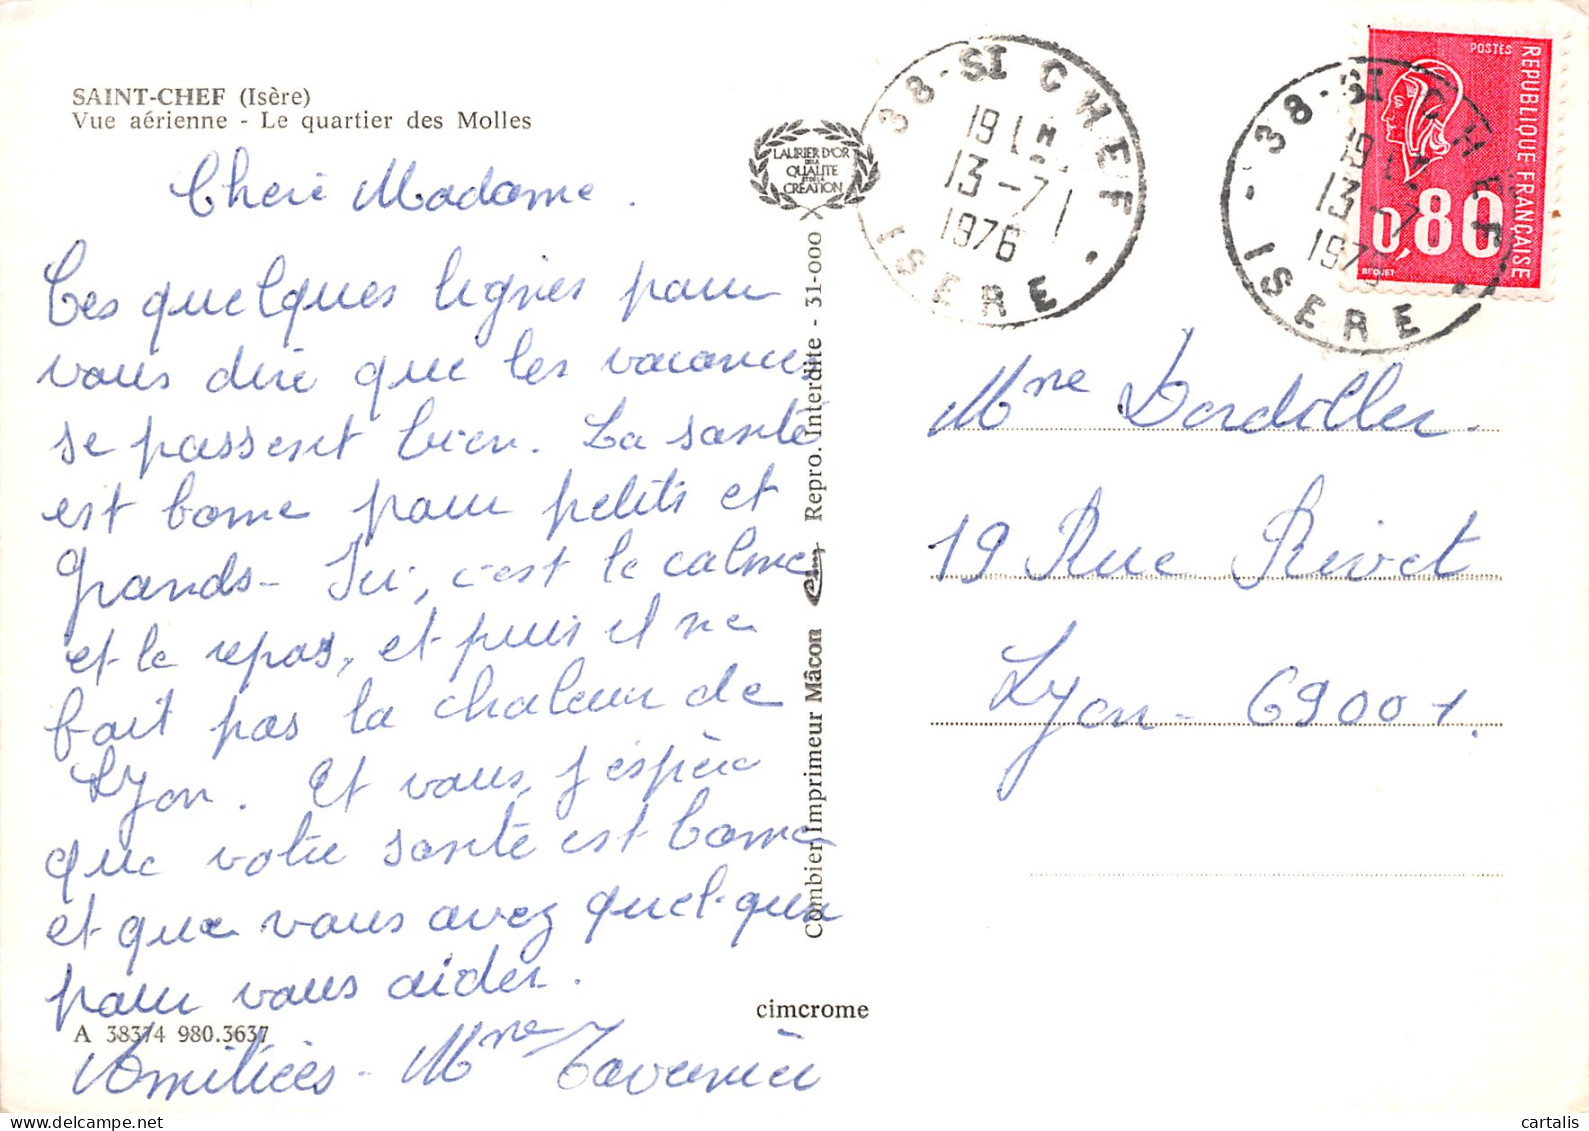 SAINT-CHEF (Isère)
Vue aérienne - Le quartier des Molles
Chère Madame.
Ces quelques lignes pour
vous dire que les vacances
se passent bien. La santé
est bonne pour petits et
grands - Ici, c'est le calme
et le repos, et puis il ne
fait pas la chaleur de
Lyon. Et vous, j'espère
que votre santé est bonne
et que vous avez quelqu'un
pour vous aider.
A 38374 980.3637
Amitiées - Mme Tavernier
LAURIER D'OR
DE LA
QUALITÉ
ET DE LA
CRÉATION
Combier Imprimeur Mâcon Repro. Interdite - 31-000
cimcrome
38 - ST CHEF
19 H
13 - 7
1976
ISERE
38 - ST CHEF
19 H
13 - 7
1976
ISERE
POSTES
REPUBLIQUE FRANÇAISE
0,80
BEQUET
Mme Dardiller.
19 Rue Rivet
Lyon - 69001.
cartalis
www.delcampe.net